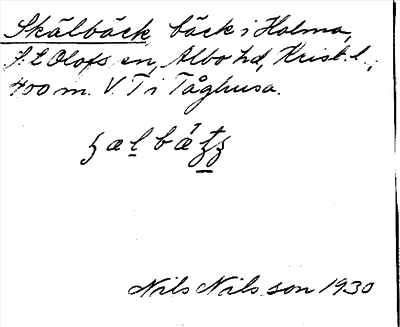 Skälbäck bäck i Holma,
S:t Olofs en, Albo hd, Krist. l.,
400 m. V. T i Tåghusa.
Nils Nilsson 1930